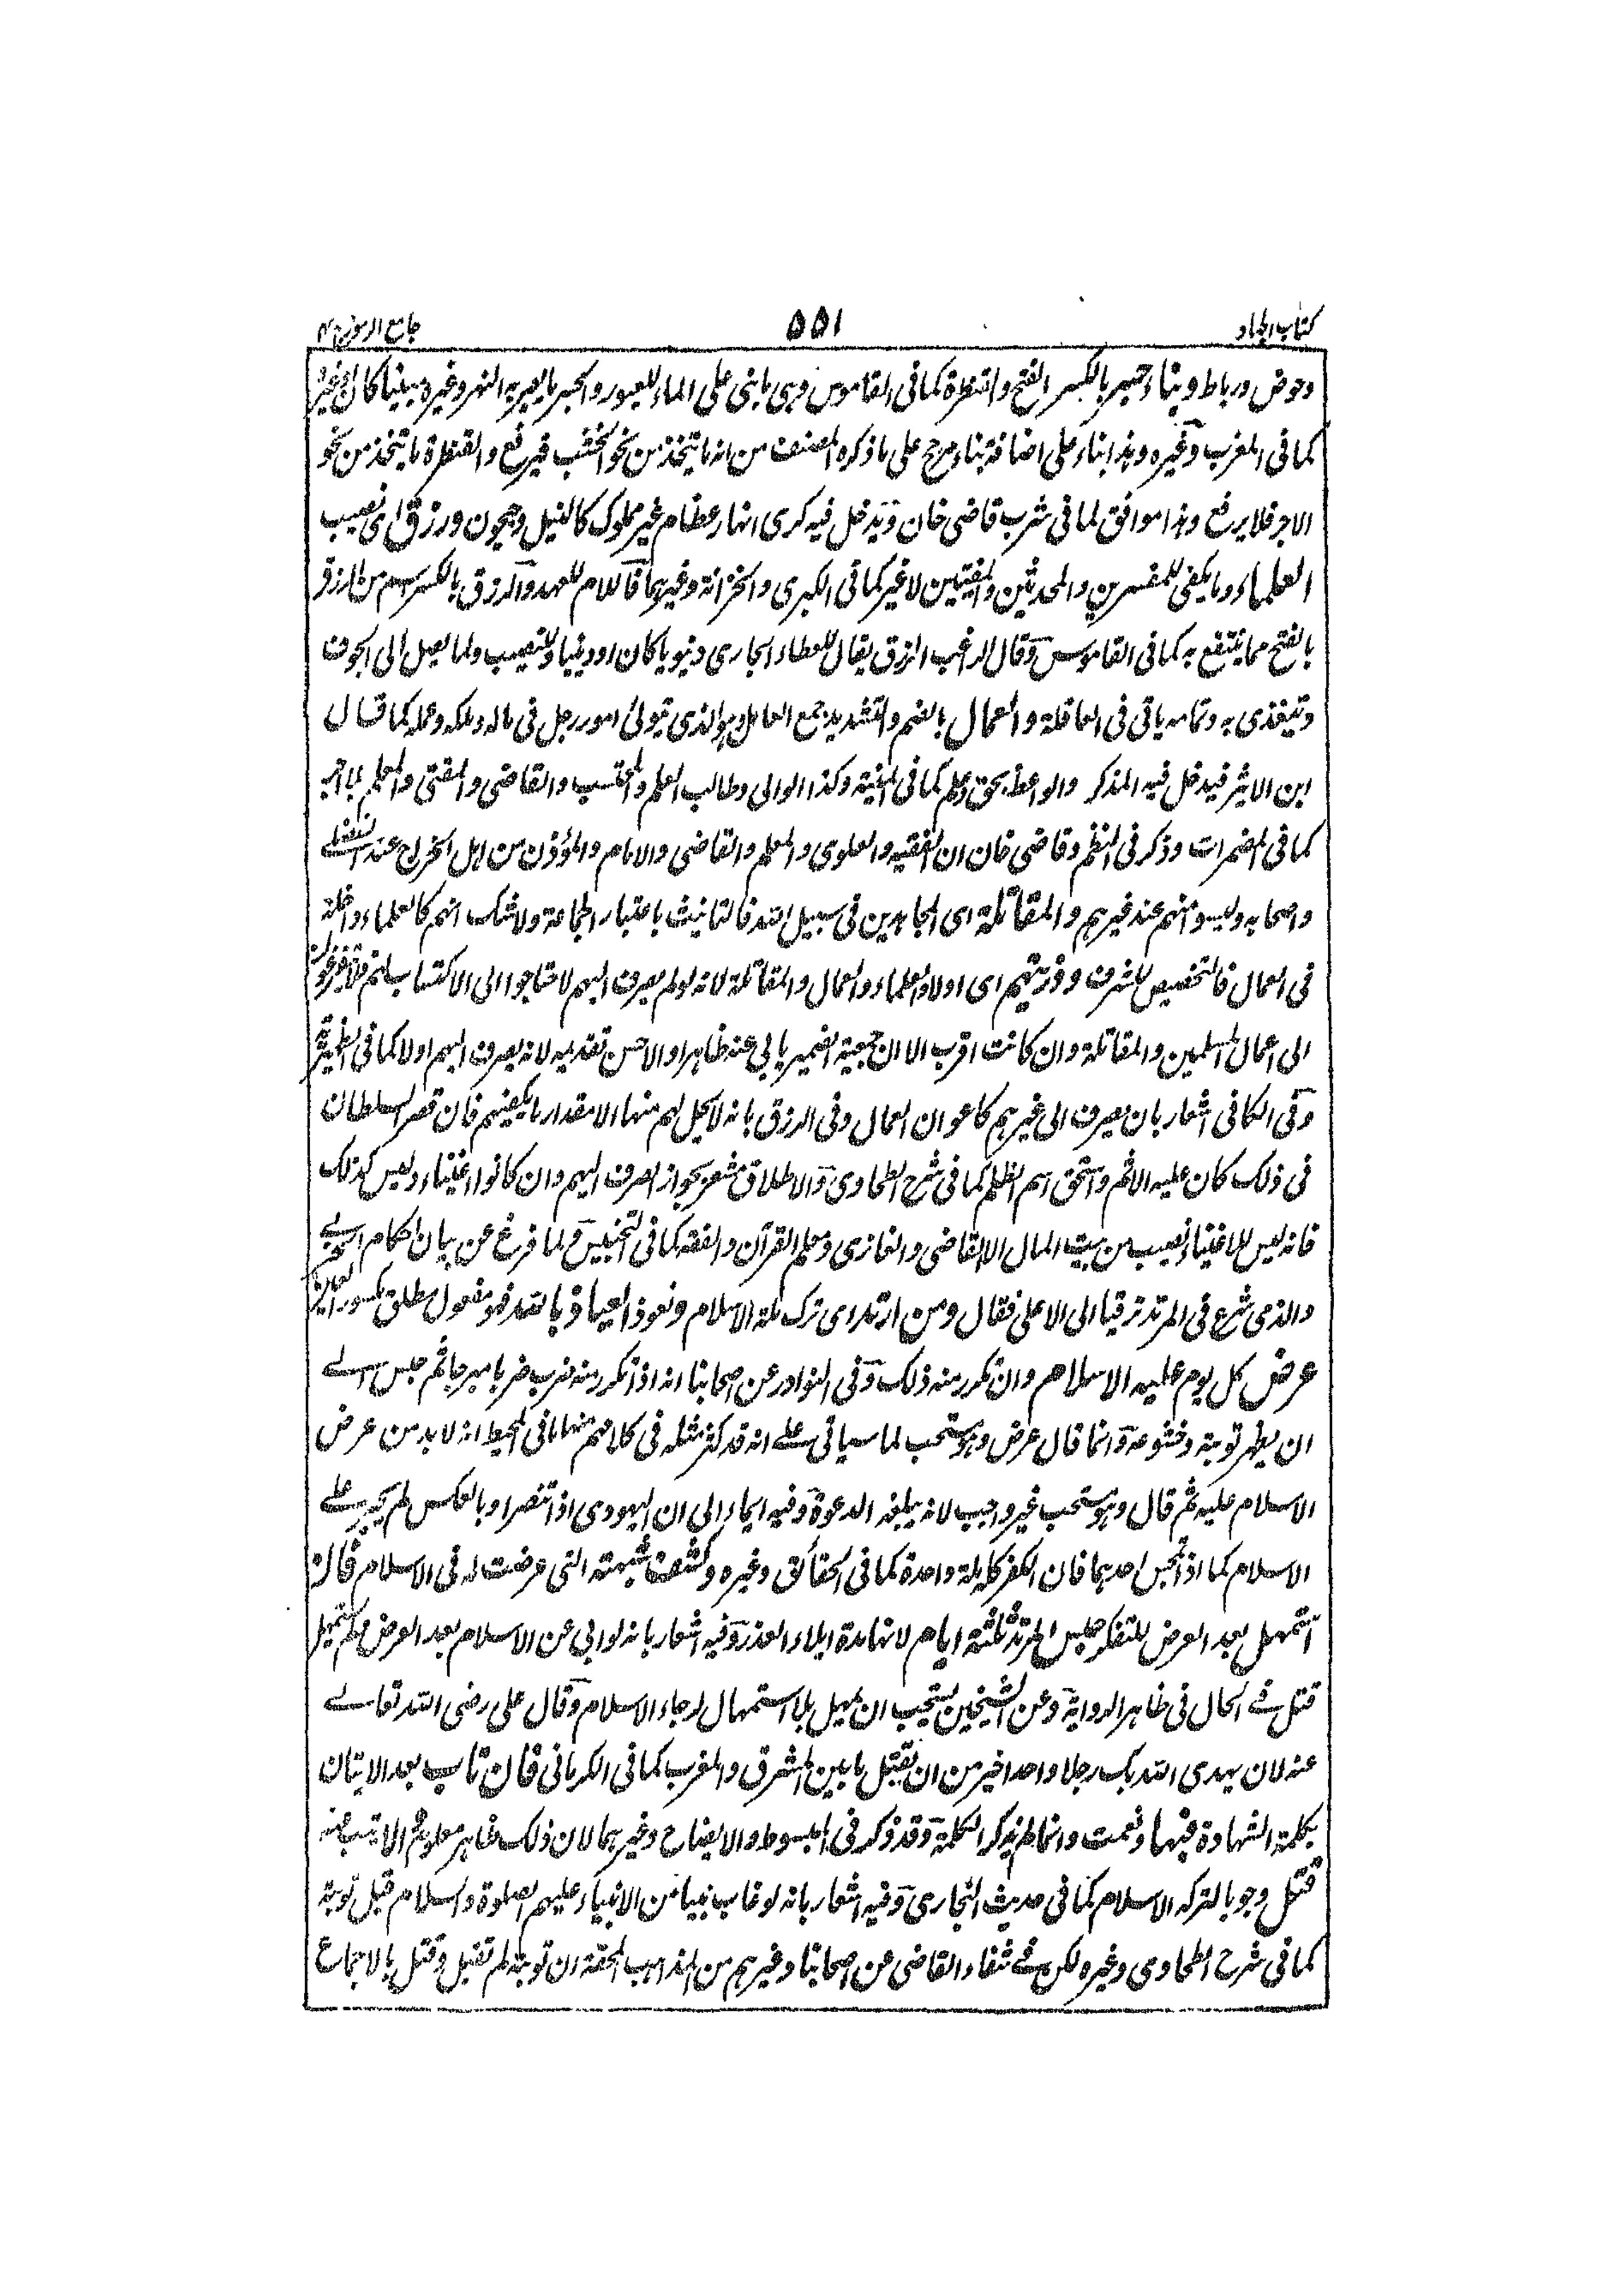 كتاب الجهاد
٥٥١
جامع الرموز ج ٤
وحوض ورباط وبناء جسر بالكسر الفتح والقنطرة كما فى القاموس وهى ما بنى على الماء للعبور والجسر ما يعبر به النهر وغيره مبنيا كان او غير
كما فى المغرب وغيره وهذا بناء على اضافة بناء مرجح على ما ذكره المصنف من انه ما يتخذ من نحو الخشب فيرفع والقنطرة ما يتخذ من نحو
الاجر فلا يرفع وهذا موافق لما فى شرب قاضى خان ويدخل فيه كرى انهار عظام غير مملوك كالنيل وجيحون ورزق اى نصيب
العلماء وما يكفى للمفسرين والمحدثين والمفتيين لا غير كما فى الكبرى والخزانة وغيرهما فاللام للعهد والرزق بالكسر اسم من الرزق
بالفتح مما ينتفع به كما فى القاموس وقال الراغب الرزق يقال للعطاء الجارى دنيويا كان او دينيا وللنصيب ولما يصل الى الجوف
ويتغذى به وتمامه ياتى فى العاقلة والعمال بالضم والتشديد جمع العامل وهو الذى يتولى امور رجل فى ماله وملكه وعمله كما قال
ابن الاثير فيدخل فيه المذكر والواعظ بحق وعلم كما فى المنية وكذا الوالى وطالب العلم والمحتسب والقاضى والمفتى والمعلم بلا اجر
كما فى المضمرات وذكر فى النظم وقاضى خان ان الفقيه والعلوى والمعلم والقاضى والامام والمؤذن من اهل الخراج عند الفضلى
واصحابه وليسوا منهم عند غيرهم والمقاتلة اى المجاهدين فى سبيل الله فالتانيث باعتبار الجماعة ولا شك انهم كالعلماء داخلة
فى العمال فالتخصيص للشرف وذريتهم اى اولاد العلماء والعمال والمقاتلة لانه لو لم يصرف اليهم لاحتاجوا الى الاكتساب لهم فلا يتفرغون
الى اعمال المسلمين والمقاتلة وان كانت اقرب الا ان جمعية الضمير يابى عنه ظاهرا والاحسن تقديمه لانه يصرف اليهم اولا كما فى الظهيرية
وفى الكافى اشعار بان يصرف الى غيرهم كاعوان العمال وفى الرزق بانه لا يحل لهم منها الا مقدار ما يكفيهم فان قصر السلطان
فى ذلك كان عليه الاثم واستحق اسم الظلم كما فى شرح الطحاوى والاطلاق مشعر بجواز الصرف اليهم وان كانوا اغنياء وليس كذلك
فانه ليس للاغنياء نصيب من بيت المال الا القاضى والغازى ومعلم القرآن والفقه كما فى التجنيس ولما فرغ عن بيان احكام الحربى
والذمى شرع فى المرتد ترقيا الى الاعلى فقال ومن ارتد اى ترك ملة الاسلام ونعوذ العياذ بالله فهو مفعول مطلق مكسور العين
عرض كل يوم عليه الاسلام وان تكرر منه ذلك وفى النوادر عن اصحابنا انه اذا تكرر منه ضرب ضربا مبرحا ثم حبس الى
ان يظهر توبته وخشوعه وانما قال عرض وهو مستحب لما سياتى على انه قد كثر مثله فى كلامهم منها ما فى المحيط انه لا بد من عرض
الاسلام عليه ثم قال وهو مستحب غير واجب لانه يبلغه الدعوة وفيه ايماء الى ان اليهودى اذا تنصر او بالعكس لم يجبر على
الاسلام كما اذا تمجس احدهما فان الكفر كله ملة واحدة كما فى الحقائق وغيره وكشف شبهته التى عرضت له فى الاسلام فان
استمهل بعد العرض للتفكر حبس المرتد ثلثة ايام لانها مدة ابلاء العذر وفيه اشعار بانه لو ابى عن الاسلام بعد العرض ولم يستمهل
قتل فى الحال فى ظاهر الرواية وعن الشيخين يستحب ان يمهل بلا استمهال لرجاء الاسلام وقال على رضى الله تعالى
عنه لان يهدى الله بك رجلا واحدا خير من ان تقتل ما بين المشرق والمغرب كما فى الكرمانى فان تاب بعد الاتيان
بكلمة الشهادة فبها ونعمت وانما لم يذكر الكلمة وقد ذكر فى المبسوط والايضاح وغيرهما لان ذلك ظاهر معلوم والا يتب عنه
قتل وجوبا لتركه الاسلام كما فى حديث البخارى وفيه اشعار بانه لو عاب نبيا من الانبياء عليهم الصلوة والسلام قبل توبته
كما فى شرح الطحاوى وغيره ولكن فى شفاء القاضى عن اصحابنا وغيرهم من المذاهب الحقة ان توبته لم تقبل وقتل بالاجماع